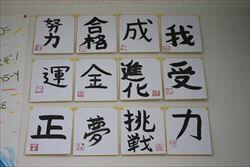 努力
合格
成
我
運
金
進化
受
正
夢
挑戦
力